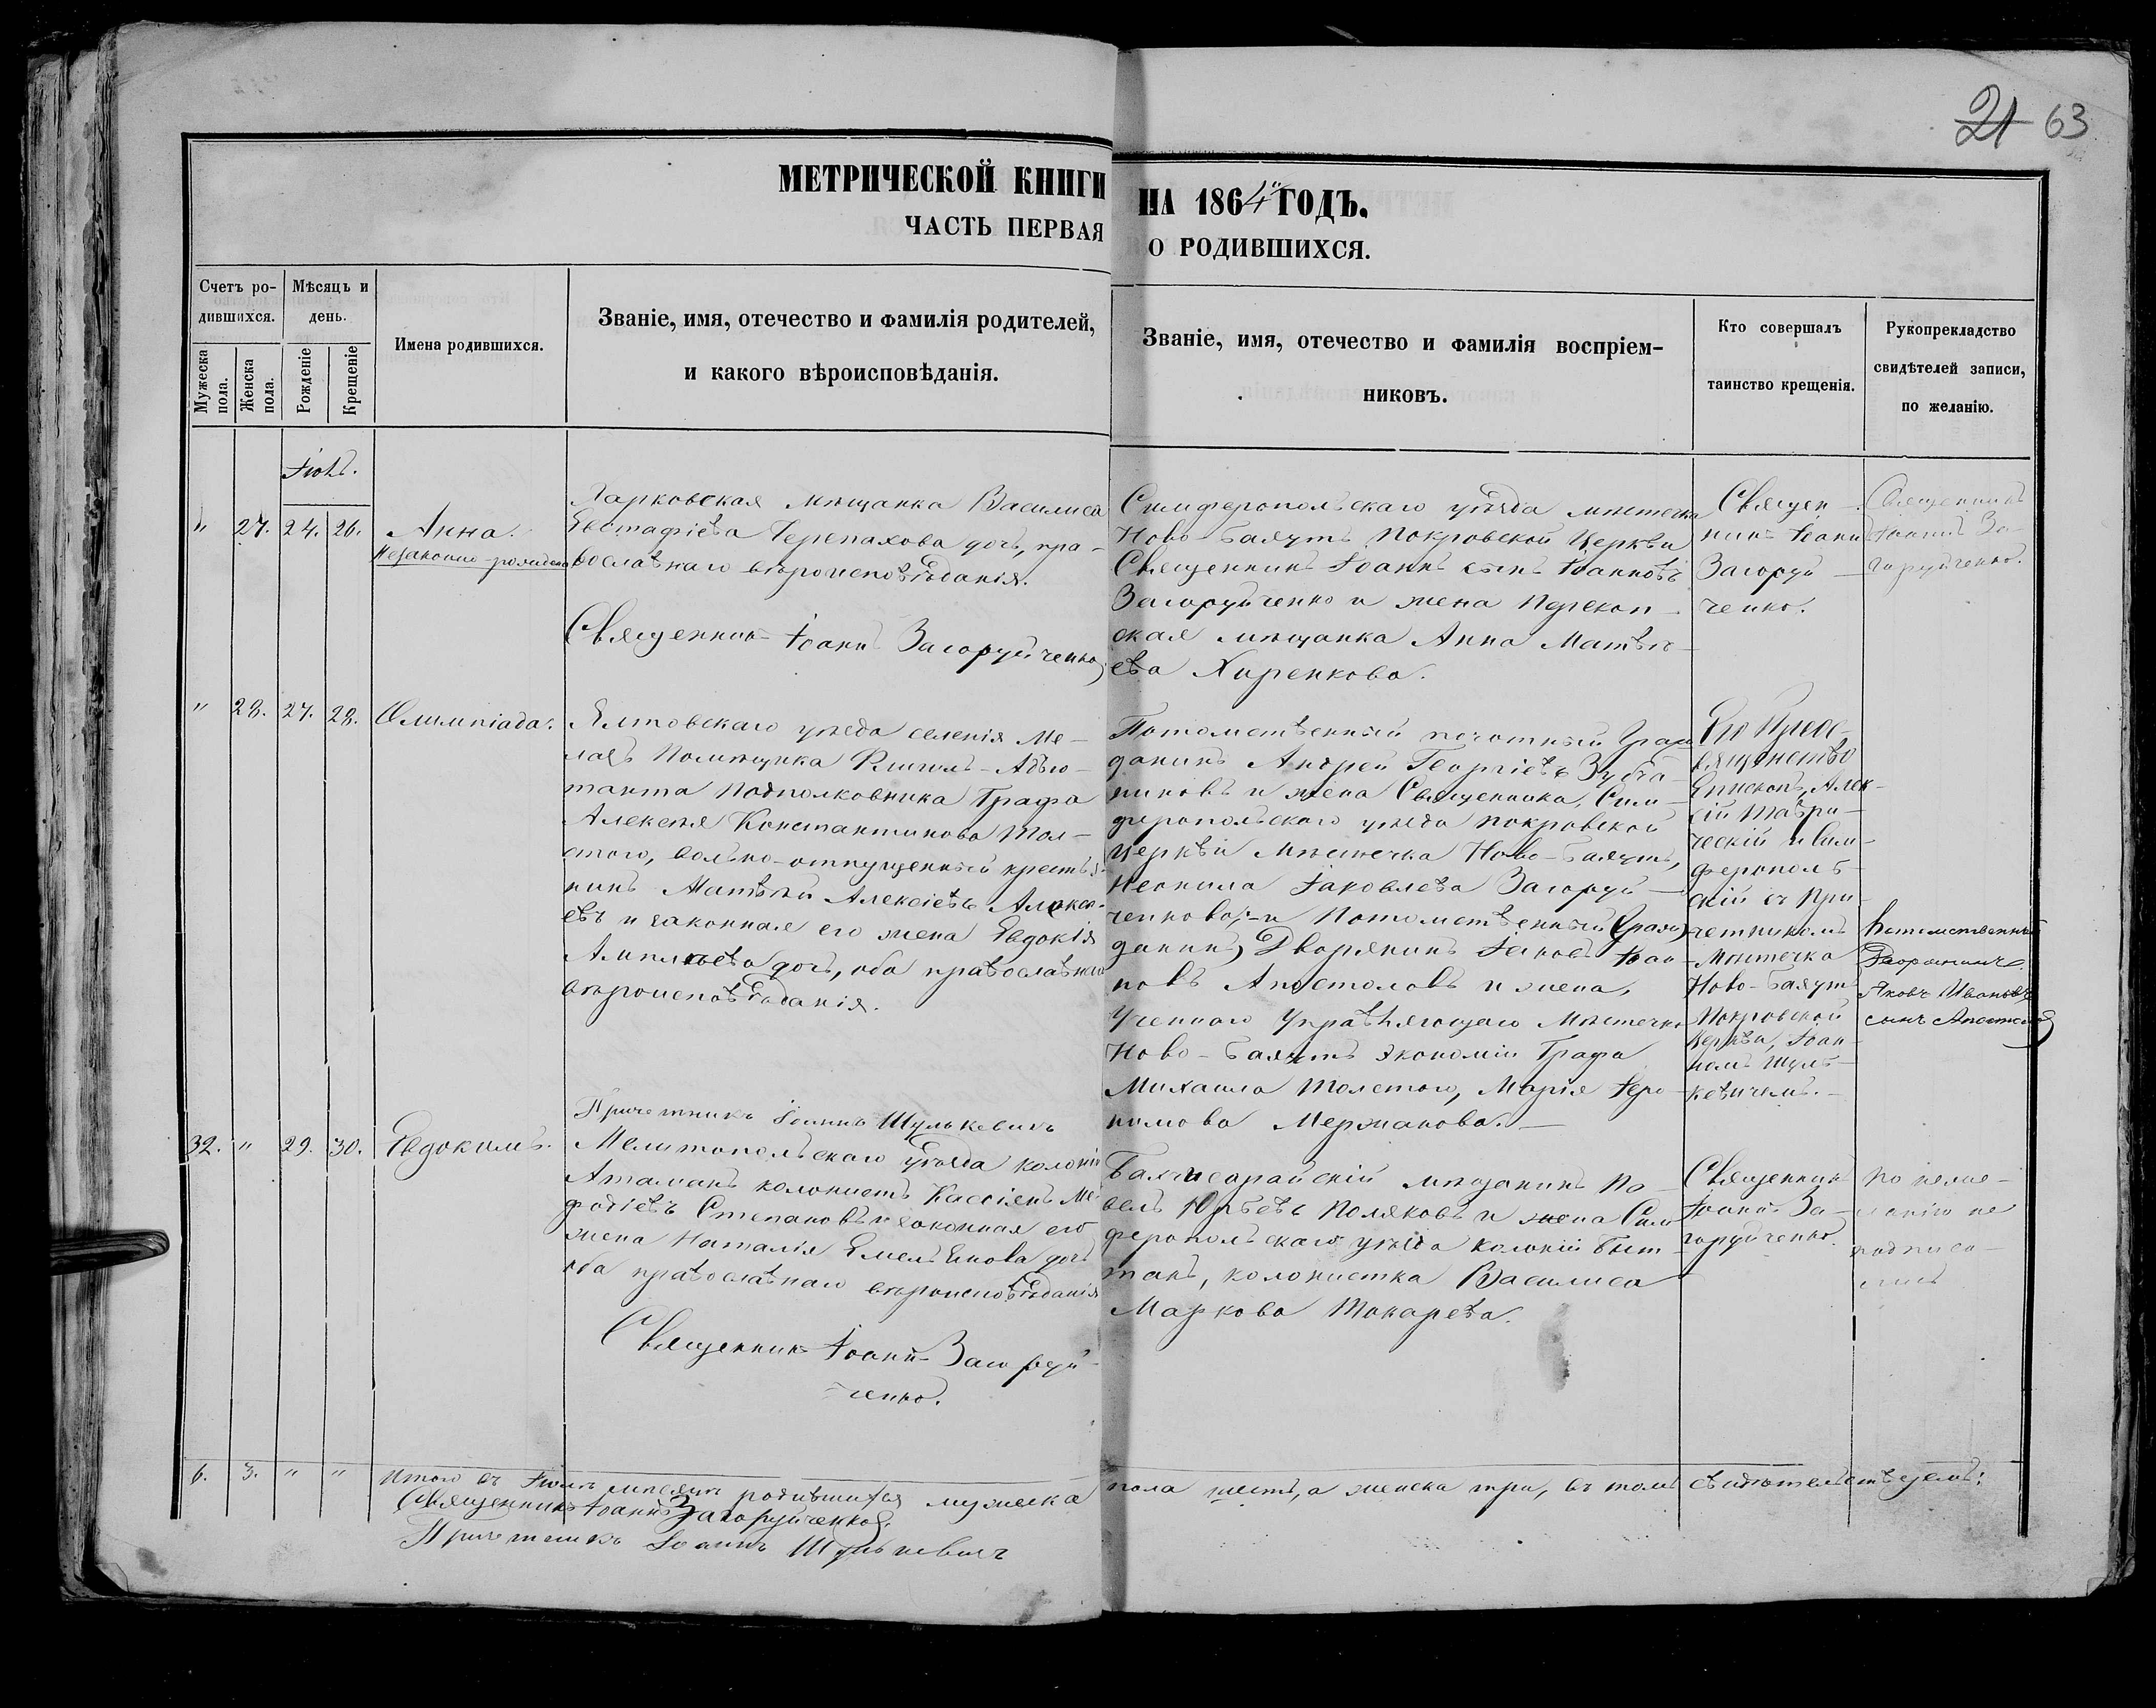 21 63
МЕТРИЧЕСКОЙ КНИГИ НА 1864 ГОДЪ.
ЧАСТЬ ПЕРВАЯ О РОДИВШИХСЯ.
Счетъ ро-
дившихся.
Мужеска
пола.
Женска
пола.
Мѣсяцъ и
день.
Рожденіе
Крещеніе
Имена родившихся.
Званіе, имя, отечество и фамилія родителей,
и какого вѣроисповѣданія.
Званіе, имя, отечество и фамилія воспріем-
никовъ.
Кто совершалъ
таинство крещенія.
Рукоприкладство
свидѣтелей записи,
по желанію.
" 27. 24. 26.
Анна.
Незаконно-рожденна
Харковская мѣщанка Василиса
Евстафіева Черепахова дочь, пра-
вославнаго вѣроисповѣданія.
Священникъ Іоаннъ Загоруйченко,
Симферопольскаго уѣзда мѣстечка
Ново-Баяутъ Покровской Церкви
Священникъ Іоаннъ сынъ Іоанновъ
Загоруйченко и жена Перекоп-
ская мѣщанка Анна Матвѣ-
ева Хиренкова.
Священ-
никъ Іоаннъ
Загоруй-
ченко.
Священникъ
Іоаннъ За-
горуйченко.
" 28. 27. 28.
Олимпіада.
Ялтовскаго уѣзда селенія Ме-
ласъ Помѣщика Флигель-Адъю-
танта Подполковника Графа
Алексѣя Константинова Тол-
стого, вольно-отпущенный крестья-
нинъ Матвѣй Алексіевъ Алексе-
евъ и законная его жена Евдокія
дочь, оба православнаго
вѣроисповѣданія.
Причетникъ Іоаннъ Шулькевичъ
Потомственный почотный Граж
данинъ Андрей Георгіевъ
и жена Священника, Сим-
феропольскаго уѣзда Покровской
Церкви Мѣстечка Ново-Баяутъ,
Неонила Іаковлева Загоруй-
ченкова, и Потомственный (Граж
данинъ) Дворянинъ Іаковъ Іоан-
новъ Апостоловъ и жена,
Ученаго Управляющаго Мѣстечка
Ново-Баяутъ Экономіи Графа
Михаила Толстого, Марія Іеро-
нимова Мержанова.
Его Преос-
вященство
Епископъ, Алек-
сій Таври-
ческій и Сим-
ферополь-
скій съ При-
четникомъ
Мѣстечка
Ново-Баяутъ
Покровской
Церкви, Іоан-
номъ Шуль-
кевичемъ.
Потомственный
Дворянинъ
Яковъ Ивановъ
сынъ Апостоловъ
32. " 29. 30.
Евдокимъ.
Мелитопольскаго уѣзда колоніи
Атаманъ колонистъ Кассіенъ Ме-
фодіевъ Степановъ и законная его
жена Наталія Емельянова дочь
оба православнаго вѣроисповѣданія
Священникъ Іоаннъ Загоруй-
ченко.
Бахчисарайскій мѣщанинъ Па-
велъ Юрьевъ Поляковъ и жена Сим
феропольскаго уѣзда колоніи Бут-
танъ, колонистка Василиса
Маркова Токарева.
Священникъ
Іоаннъ За-
горуйченко.
По неже-
ланію не
подписа-
лись
6. 3. " " Итого въ Іюлѣ мѣсяцѣ родившихся мужеска пола шесть, а женска три, въ томъ свидѣтельствуемъ:
Священникъ Іоаннъ Загоруйченко.
Причетникъ Іоаннъ Шулькевичъ